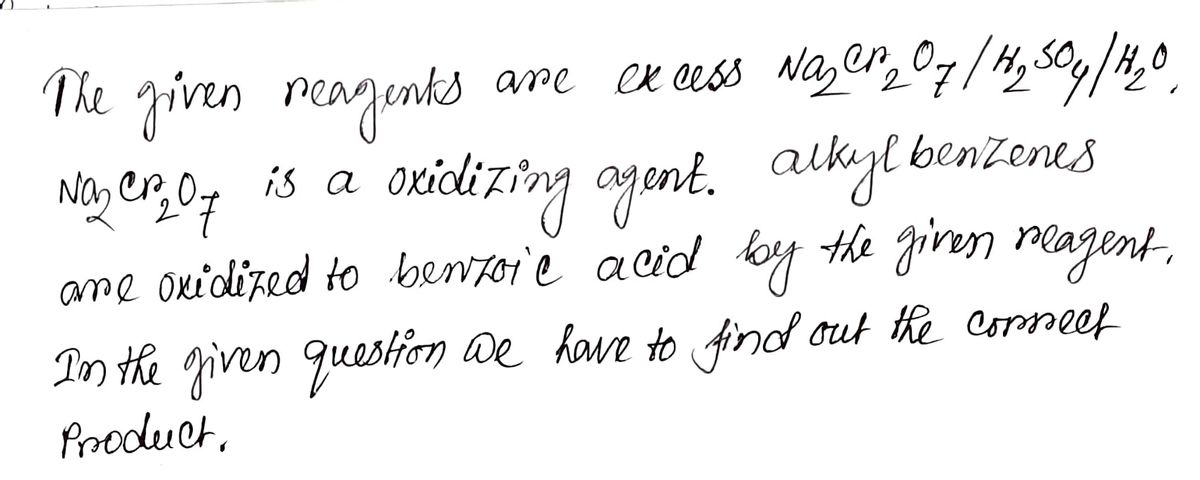 The given reagents are excess Na₂Cr₂O₇/H₂SO₄/H₂O.
Na₂Cr₂O₇ is a oxidizing agent. alkylbenzenes
are oxidized to benzoic acid by the given reagent.
In the given question we have to find out the correct
Product.